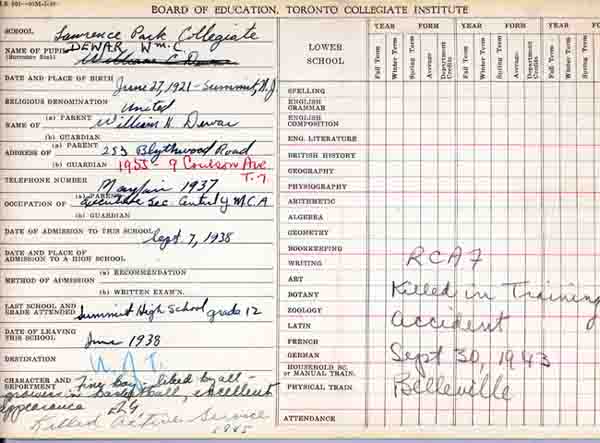 BOARD OF EDUCATION, TORONTO COLLEGIATE INSTITUTE
SCHOOL Lawrence Park Collegiate
NAME OF PUPIL DEWAR, Wm. C
(Surname first) William C. Dewar
DATE AND PLACE OF BIRTH June 27, 1921 - Summit, N.J.
RELIGIOUS DENOMINATION United
NAME OF (a) PARENT William N. Dewar
(b) GUARDIAN
ADDRESS OF (a) PARENT 283 Blythwood Road
(b) GUARDIAN 1955 - 9 Coulson Ave
T. 7
TELEPHONE NUMBER Mayfair 1937
OCCUPATION OF (a) PARENT Executive Sec. Central Y M C A
(b) GUARDIAN
DATE OF ADMISSION TO THIS SCHOOL Sept. 7, 1938
DATE AND PLACE OF
ADMISSION TO A HIGH SCHOOL
METHOD OF ADMISSION (a) RECOMMENDATION
(b) WRITTEN EXAM'N.
LAST SCHOOL AND
GRADE ATTENDED Summit High School grade 12
DATE OF LEAVING
THIS SCHOOL June 1938
DESTINATION
CHARACTER AND
DEPORTMENT Fine boy - liked by all -
excellent
appearance
Killed Active Service
1945
LOWER
SCHOOL
YEAR FORM YEAR FORM YEAR FORM
Fall Term Winter Term Spring Term Average Department Credits Fall Term Winter Term Spring Term Average Department Credits Fall Term Winter Term Spring Term
SPELLING
ENGLISH
GRAMMAR
ENGLISH
COMPOSITION
ENG. LITERATURE
BRITISH HISTORY
GEOGRAPHY
PHYSIOGRAPHY
ARITHMETIC
ALGEBRA
GEOMETRY
BOOKKEEPING
WRITING
ART
BOTANY
ZOOLOGY
LATIN
FRENCH
GERMAN
HOUSEHOLD SC.
OR MANUAL TRAIN.
PHYSICAL TRAIN.
ATTENDANCE
RCAF
Killed in Training
accident
Sept 30, 1943
Belleville